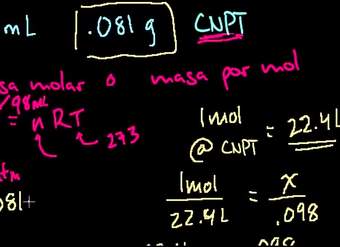 mL .081 g CNPT
sa molar o masa por mol
98mL
= nRT
273
1mol = 22.4L
@ CNPT
1mol = x
22.4L .098
atm
081